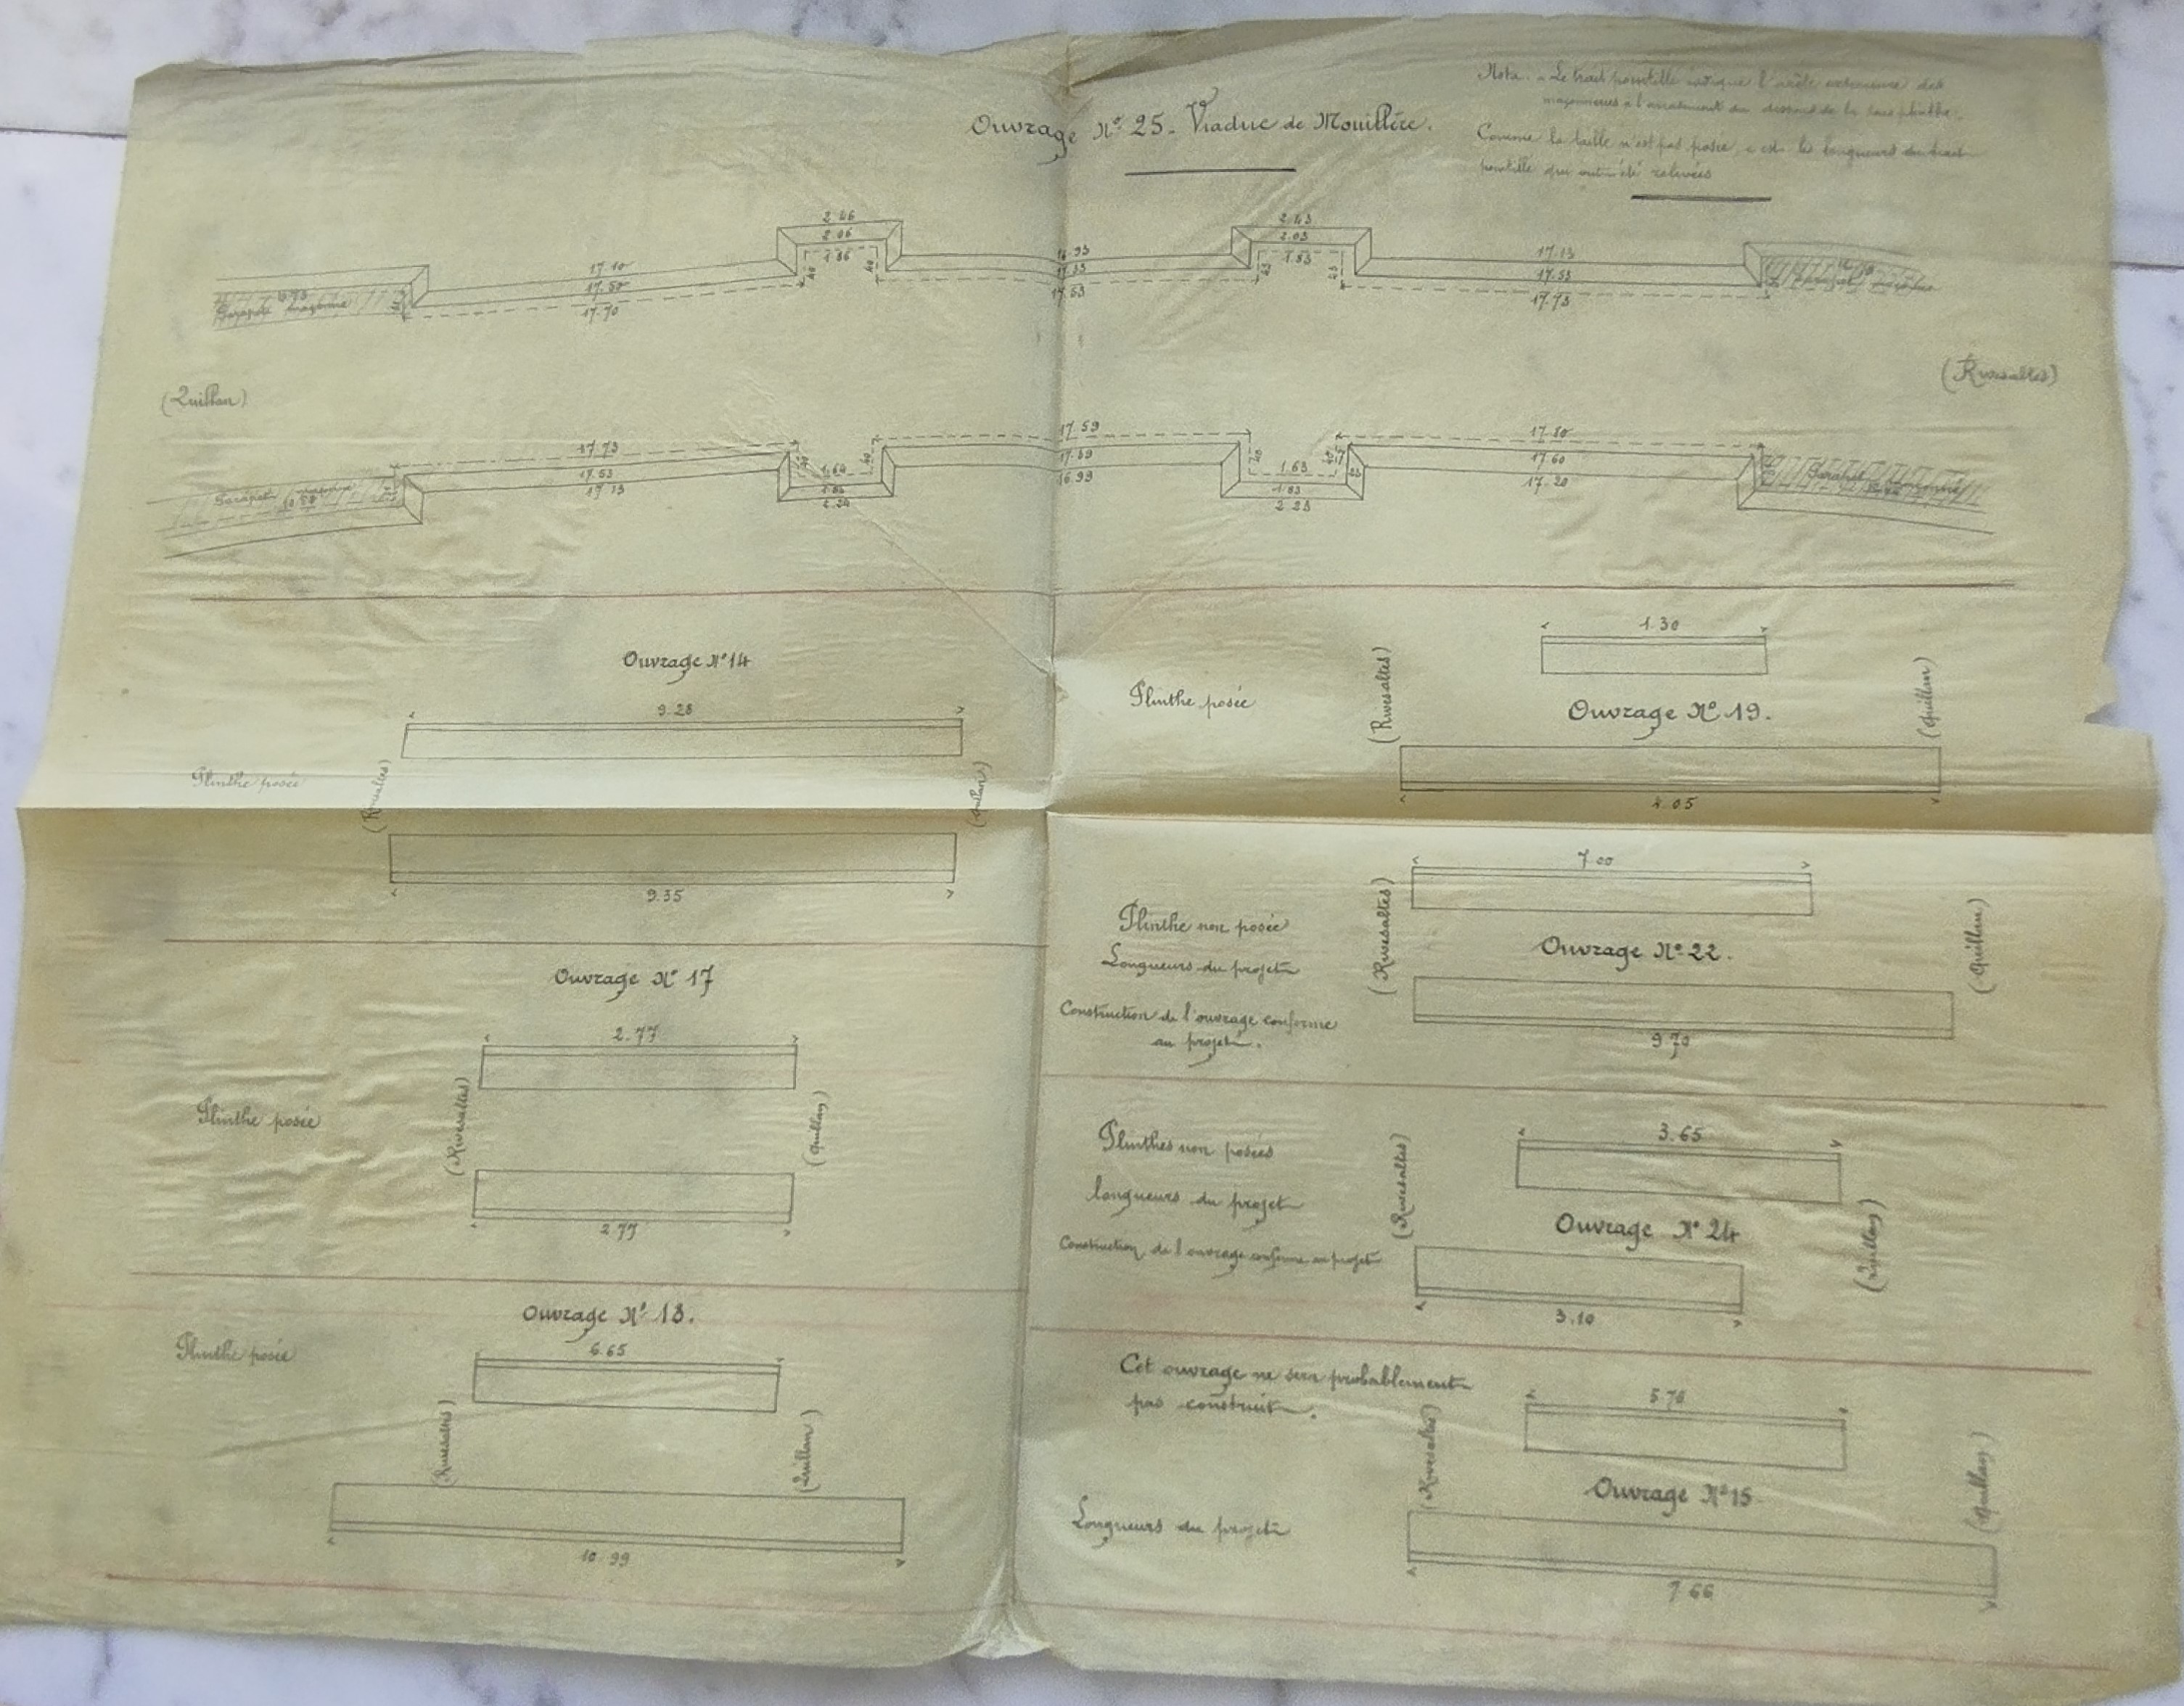 Ouvrage Nº 25. Viaduc de Mouillère.
Nota. Le trait pointillé indique l'arête extérieure des
maçonneries à l'arasement du dessous de la plinthe.
Comme la taille n'est pas posée, c'est les longueurs du trait
pointillé qui ont été relevées
2.46
2.06
1.86
40
40
17.10
17.50
17.70
16.93
17.33
17.53
2.43
2.03
1.83
17.13
17.53
17.73
Parapet maçonné
(Quillan)
(Rivesaltes)
17.73
17.53
17.13
1.64
2.24
17.59
17.39
16.99
1.63
1.83
2.23
17.80
17.60
17.20
Parapet
Parapet
Ouvrage Nº 14
9.28
Plinthe posée
(Rivesaltes)
(Quillan)
9.35
Ouvrage Nº 17
2.77
Plinthe posée
(Rivesaltes)
(Quillan)
2.77
Ouvrage Nº 18.
6.65
Plinthe posée
(Rivesaltes)
(Quillan)
10.99
1.30
Plinthe posée
(Rivesaltes)
Ouvrage Nº 19.
(Quillan)
4.05
7.00
Plinthe non posée
Longueurs du projet
Construction de l'ouvrage conforme
au projet.
(Rivesaltes)
Ouvrage Nº 22.
(Quillan)
9.70
3.65
Plinthes non posées
longueurs du projet
Construction de l'ouvrage conforme au projet
(Rivesaltes)
Ouvrage Nº 24
(Quillan)
3.10
Cet ouvrage ne sera probablement
pas construit.
5.70
(Rivesaltes)
Ouvrage Nº 15
(Quillan)
Longueurs du projet
7.66